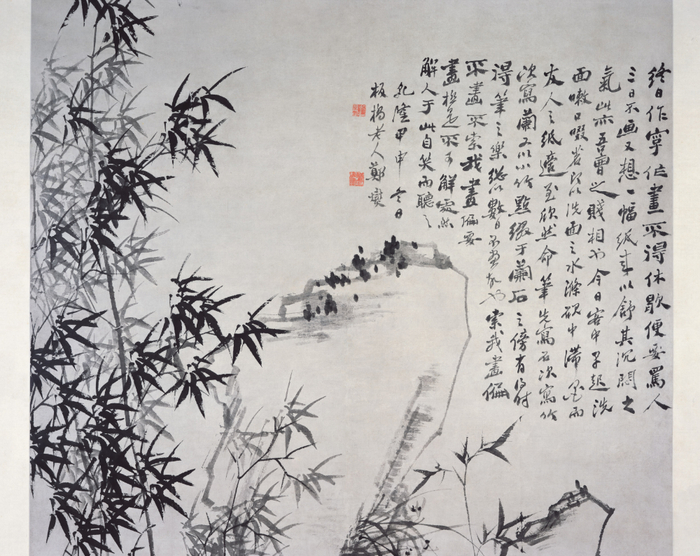 終日作字作畫不得休歇便要罵人
三日不画又想一幅紙來以舒其沉悶之
氣此亦吾曹之賤相也今日客中早起洗
面漱口啜茗即以洗面之水滌硯中滯墨而
友人之紙適至欣然命筆先寫石次寫竹
次寫蘭又以小竹點綴于蘭石之傍有得時
得筆之樂總以數日不畫故也索我畫偏
不畫不索我畫偏要
畫極是不可解處然
解人于此自笑而聽之
乾隆甲申冬日
板橋老人鄭燮